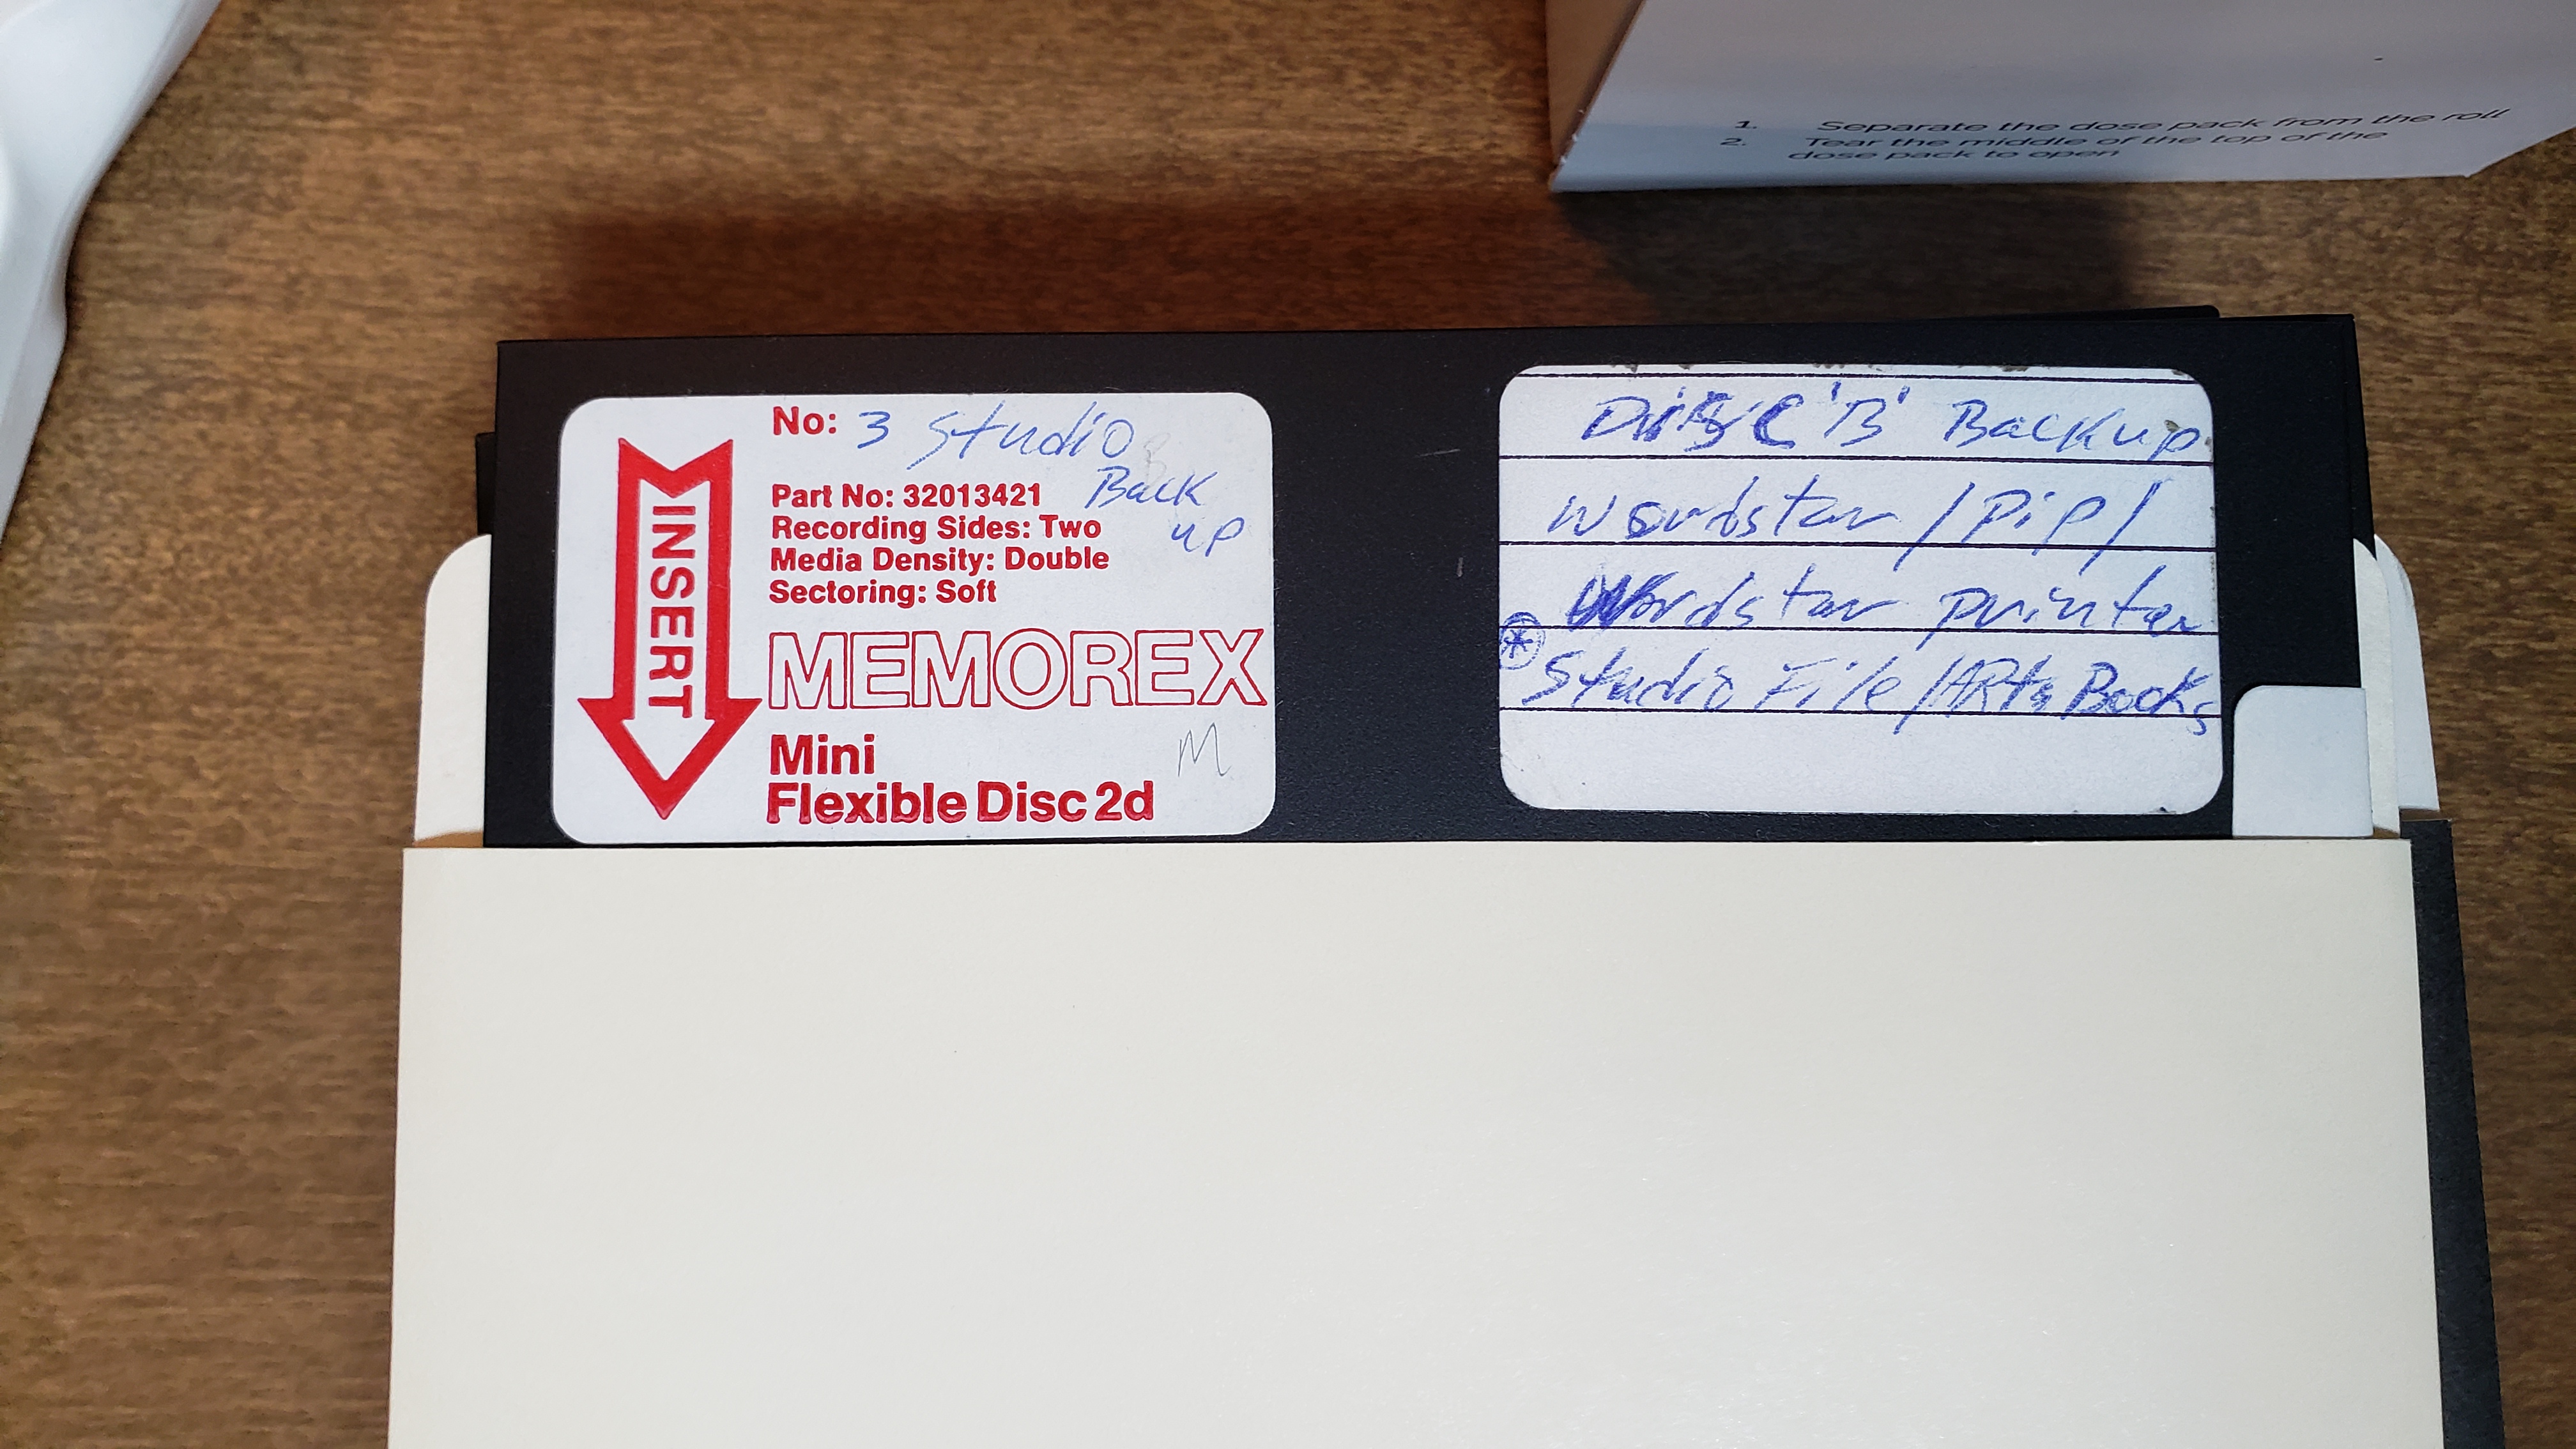 1. Separate the dose pack from the roll
2. Tear the middle of the top of the
dose pack to open
No: 3 Studio
Back
up
Part No: 32013421
Recording Sides: Two
Media Density: Double
Sectoring: Soft
INSERT
MEMOREX
M
Mini
Flexible Disc 2d
DISC 'B' Backup
Wordstar / Pip /
Wordstar printer
* Studio File / ARts Books